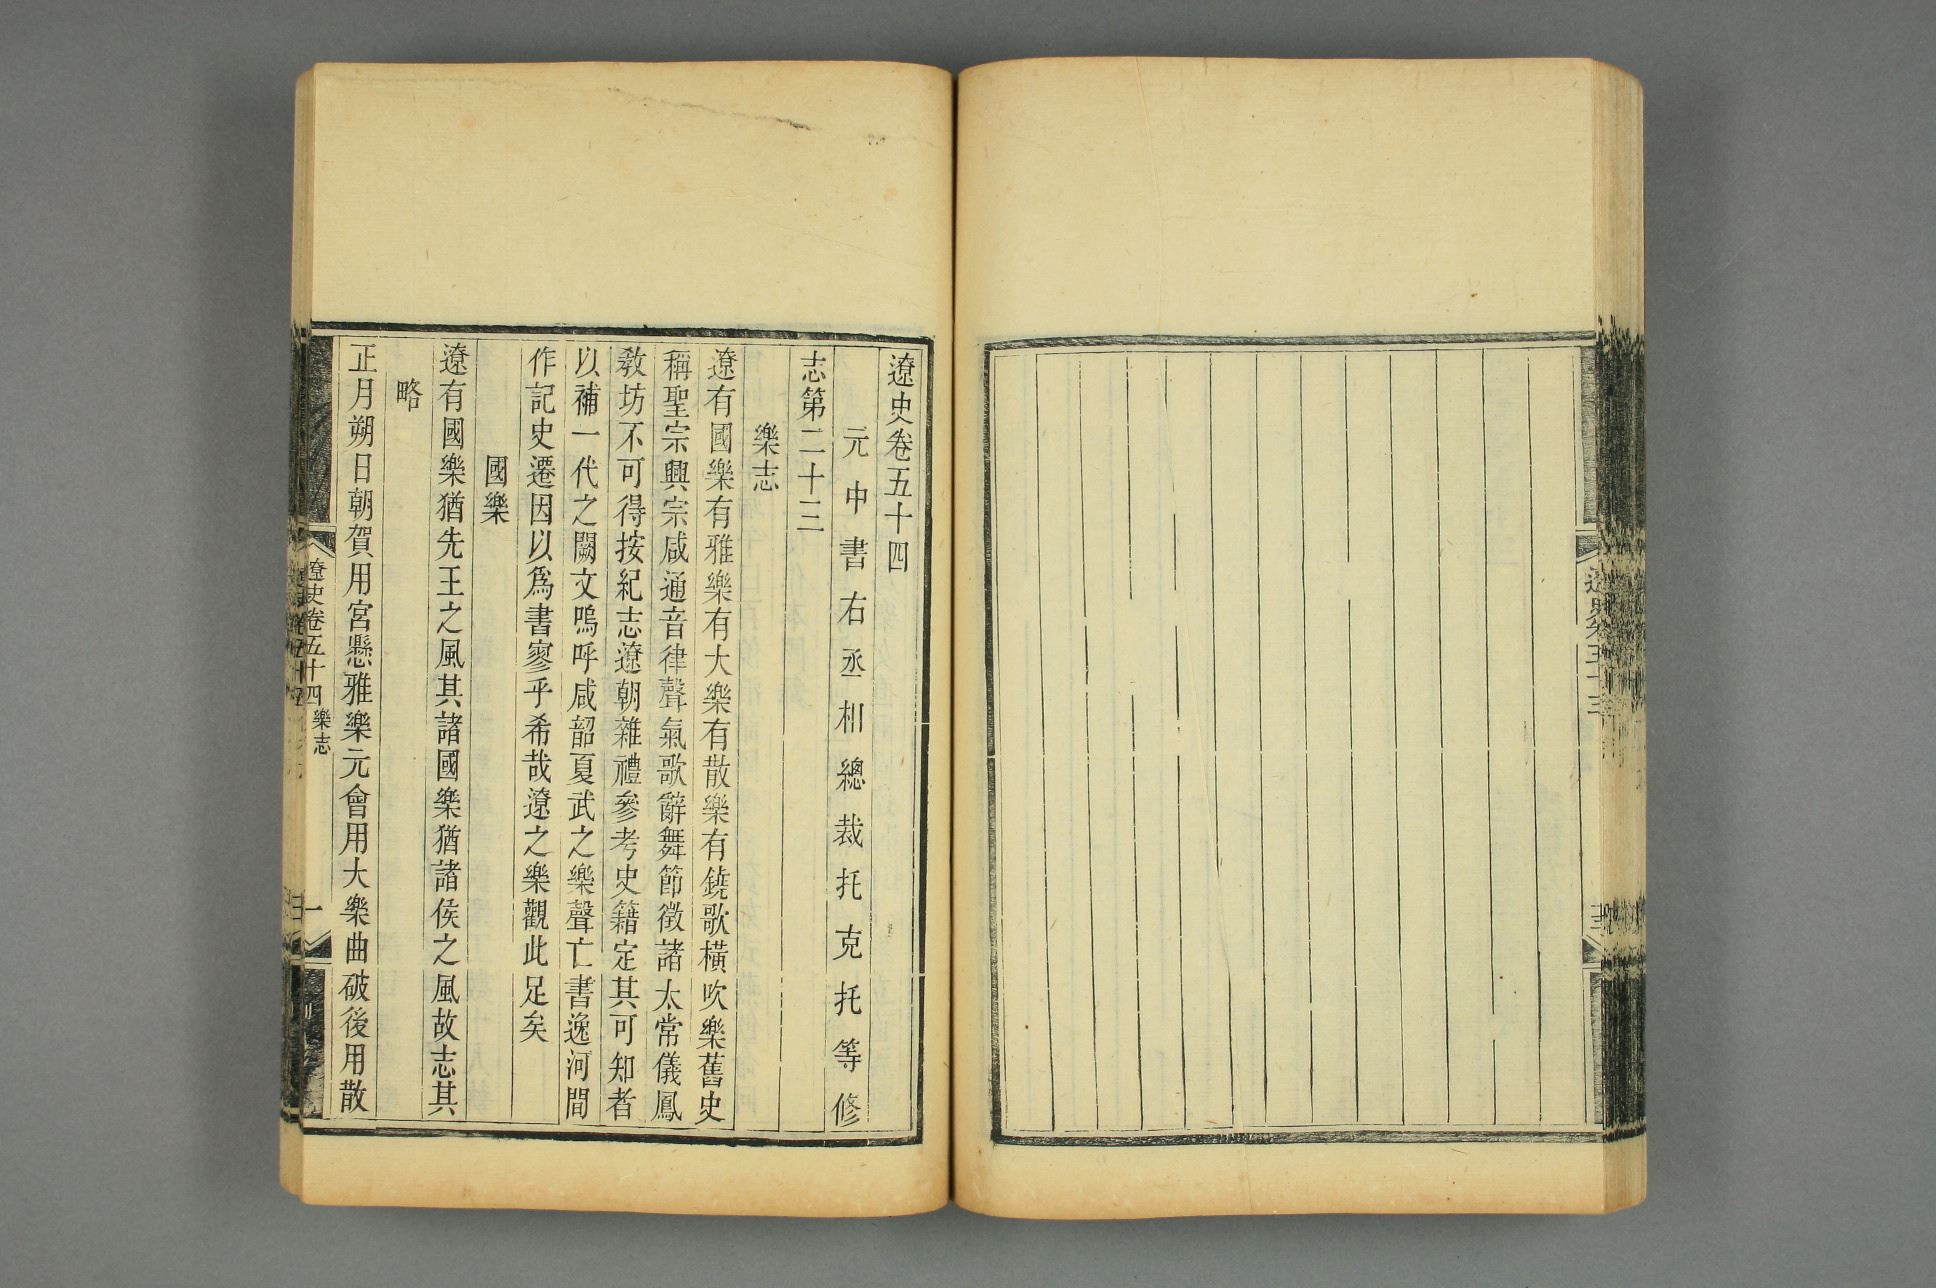 遼史卷五十四
元中書右丞相總裁托克托等修
志第二十三
樂志
遼有國樂有雅樂有大樂有散樂有鐃歌橫吹樂舊史
稱聖宗興宗咸通音律聲氣歌辭舞節徵諸太常儀鳳
教坊不可得按紀志遼朝雜禮參考史籍定其可知者
以補一代之闕文嗚呼咸韶夏武之樂聲亡書逸河間
作記史遷因以爲書寥乎希哉遼之樂觀此足矣
國樂
遼有國樂猶先王之風其諸國樂猶諸侯之風故志其
略
正月朔日朝賀用宮懸雅樂元會用大樂曲破後用散
遼史卷五十四 樂志
一